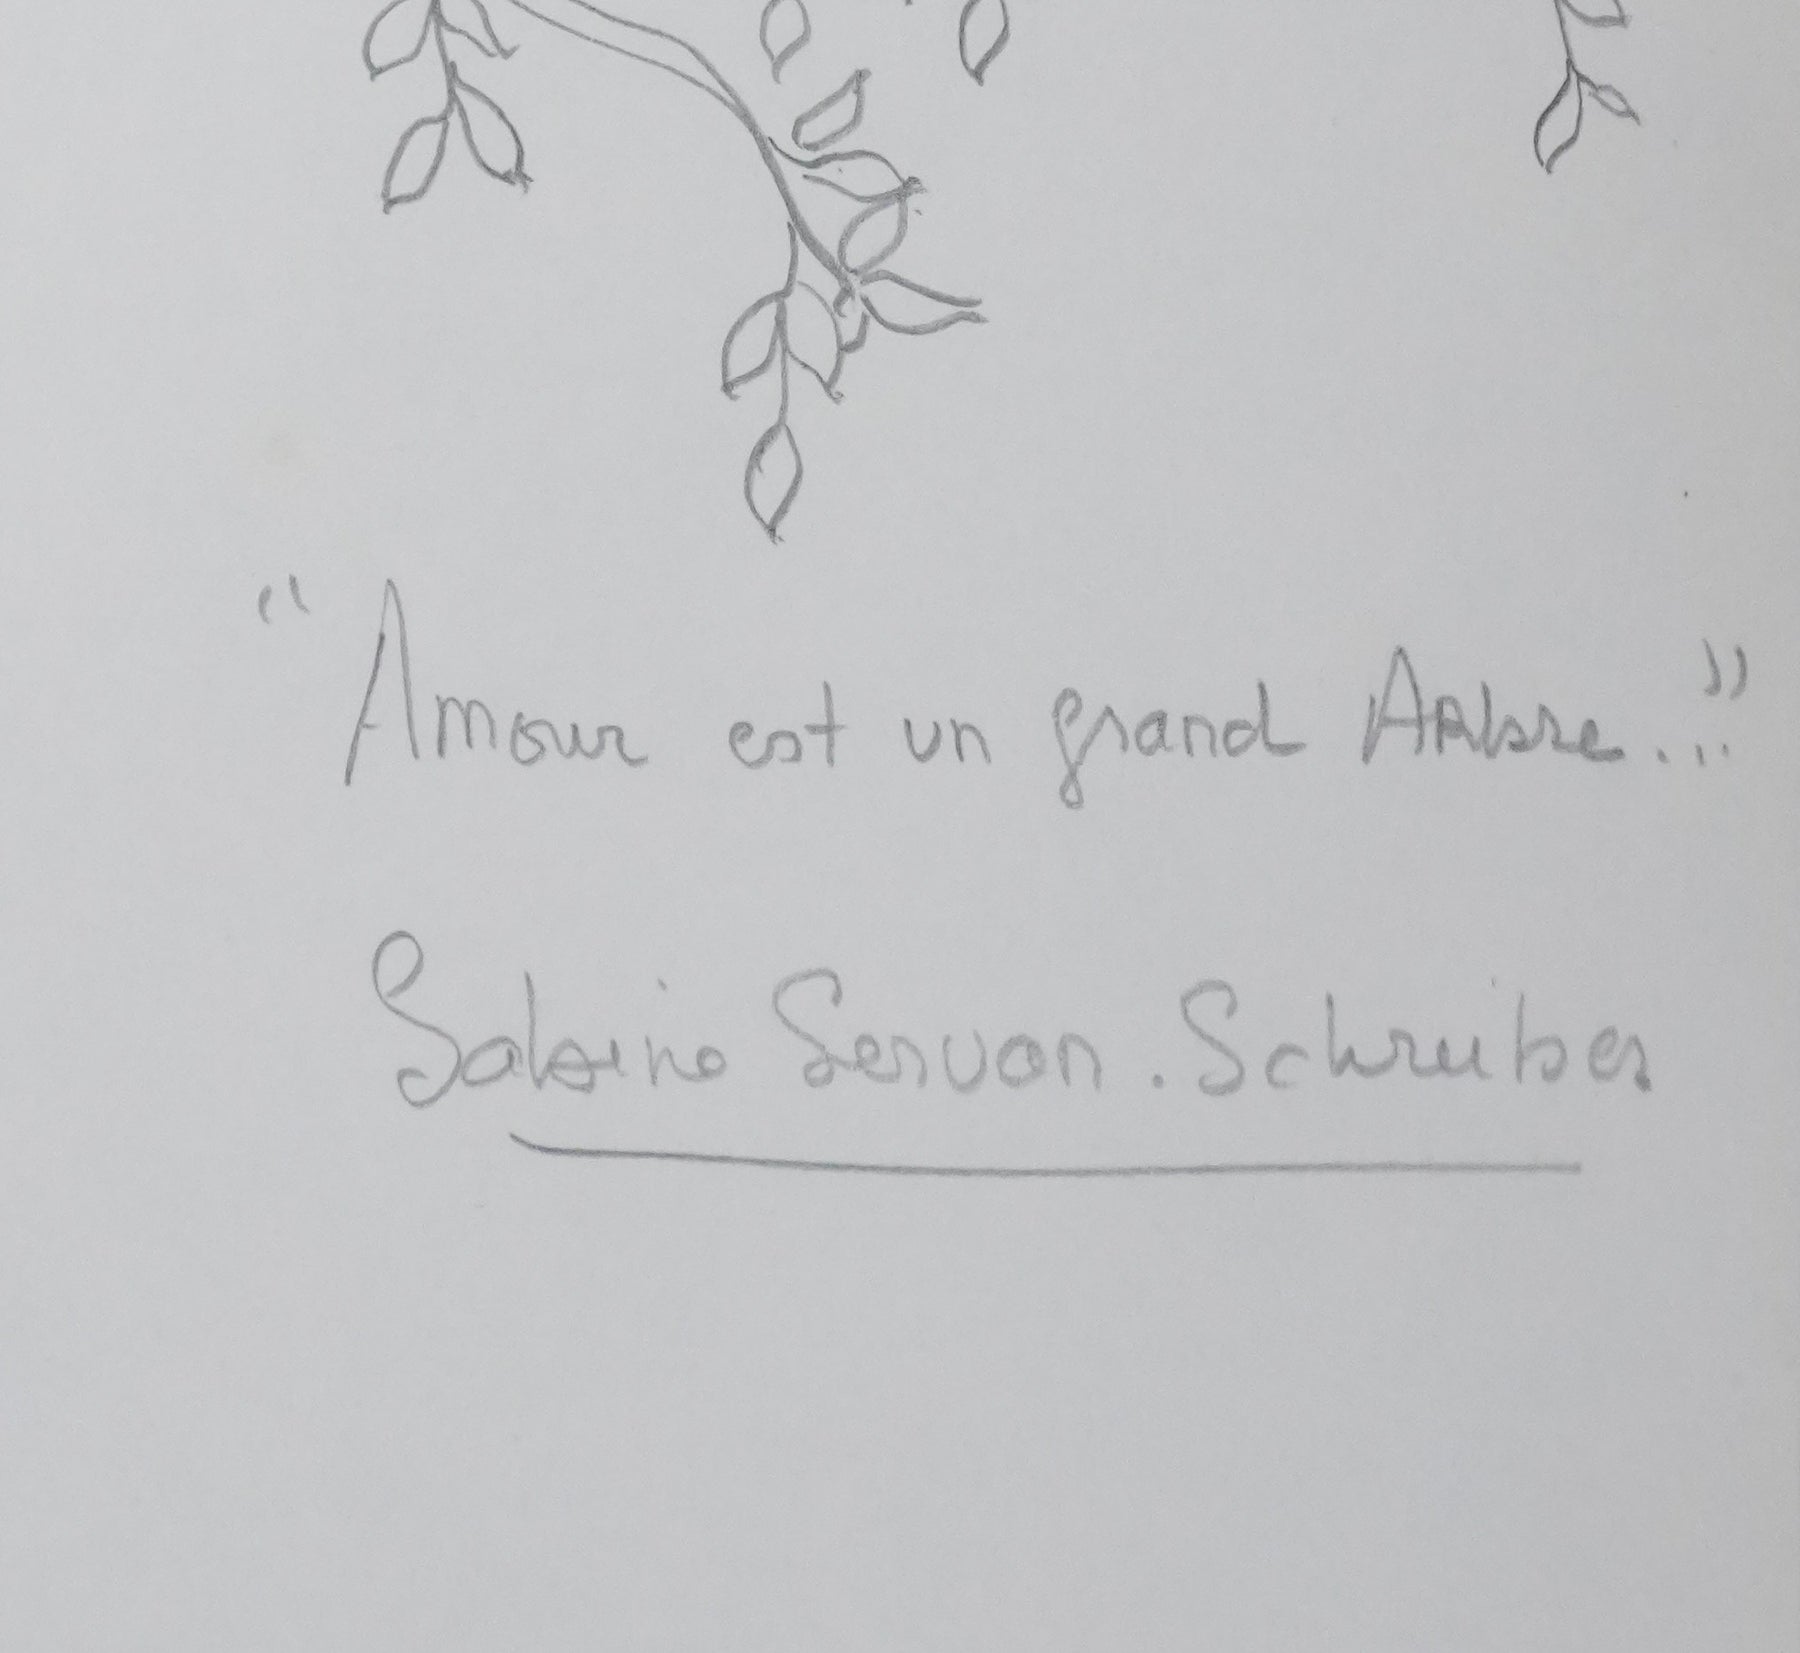 "Amour est un grand Arbre..."
Sabine Servan.Schreiber